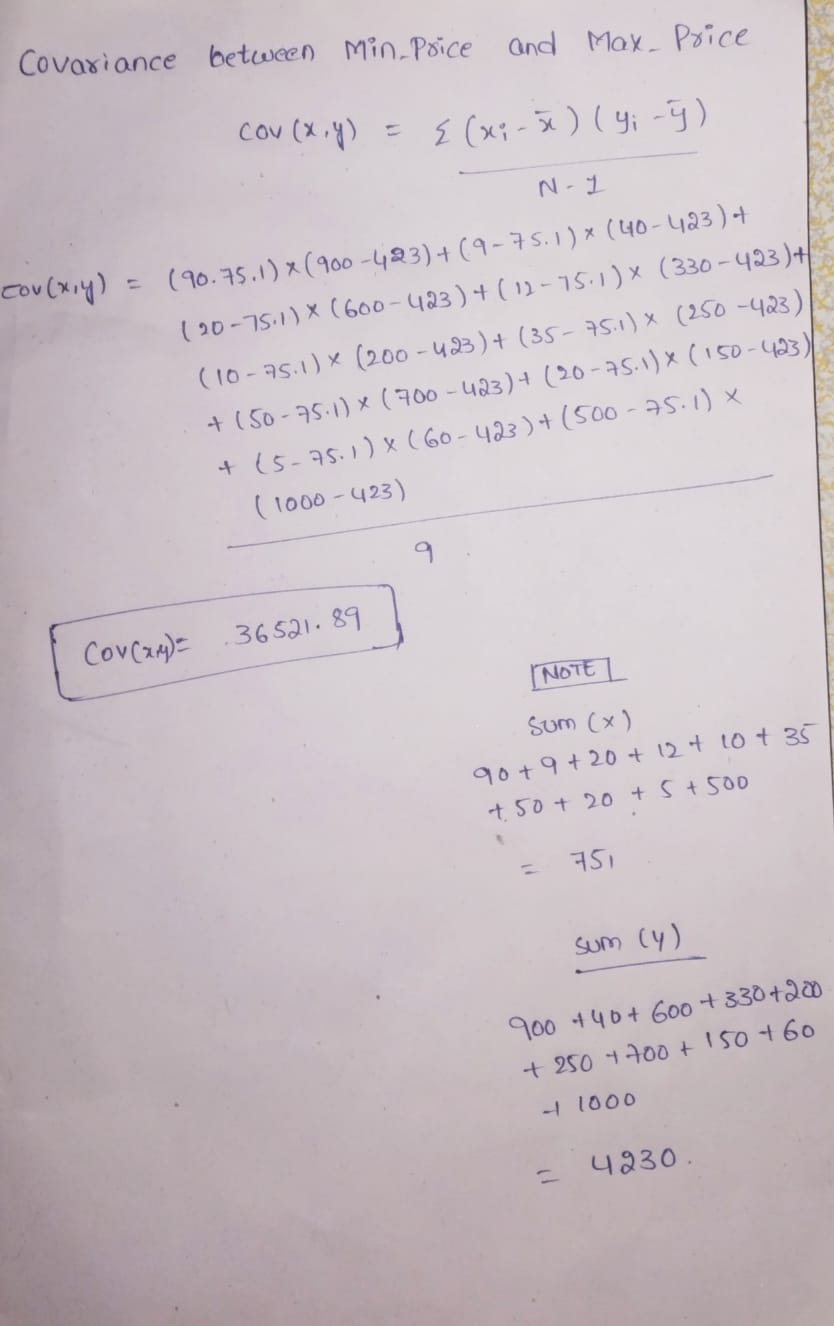 Covariance between Min_Price and Max_ Price
cov (x,y) = Σ (xi - x̄ ) ( yi - ȳ )
N - 1
cov(x,y) = (90.75.1) x (900 - 423) + (9-75.1) x (40-423) +
(20-75.1) x (600-423) + (12-75.1) x (330-423)+
(10-75.1) x (200-423) + (35-75.1) x (250-423)
+ (50-75.1) x (700-423) + (20-75.1) x (150-423)
+ (5-75.1) x (60-423) + (500-75.1) x
(1000-423)
9
Cov(x,y)= 36521.89
NOTE
Sum (x)
90 + 9 + 20 + 12 + 10 + 35
+ 50 + 20 + 5 + 500
= 751
sum (y)
900 + 40 + 600 + 330 + 200
+ 250 + 700 + 150 + 60
+ 1000
= 4230.